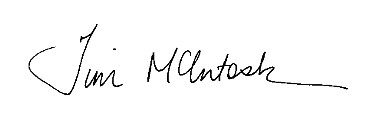 Jim McIntosh